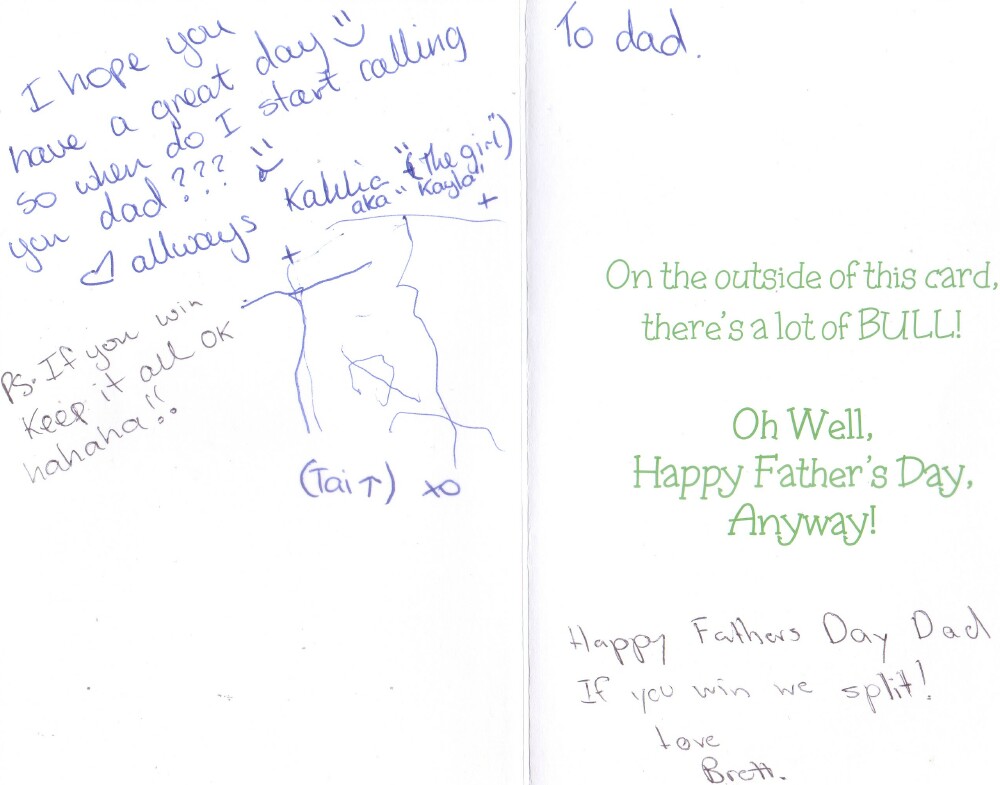 I hope you
have a great day
so when do I start calling
you dad???
allways Kahlia "(the girl")
aka "Kayla"
+
+
Ps. If you win
keep it all OK
hahaha!!
(Tai↑) xo
To dad.
On the outside of this card,
there's a lot of BULL!
Oh Well,
Happy Father's Day,
Anyway!
Happy Fathers Day Dad
If you win we split!
Love
Brett.